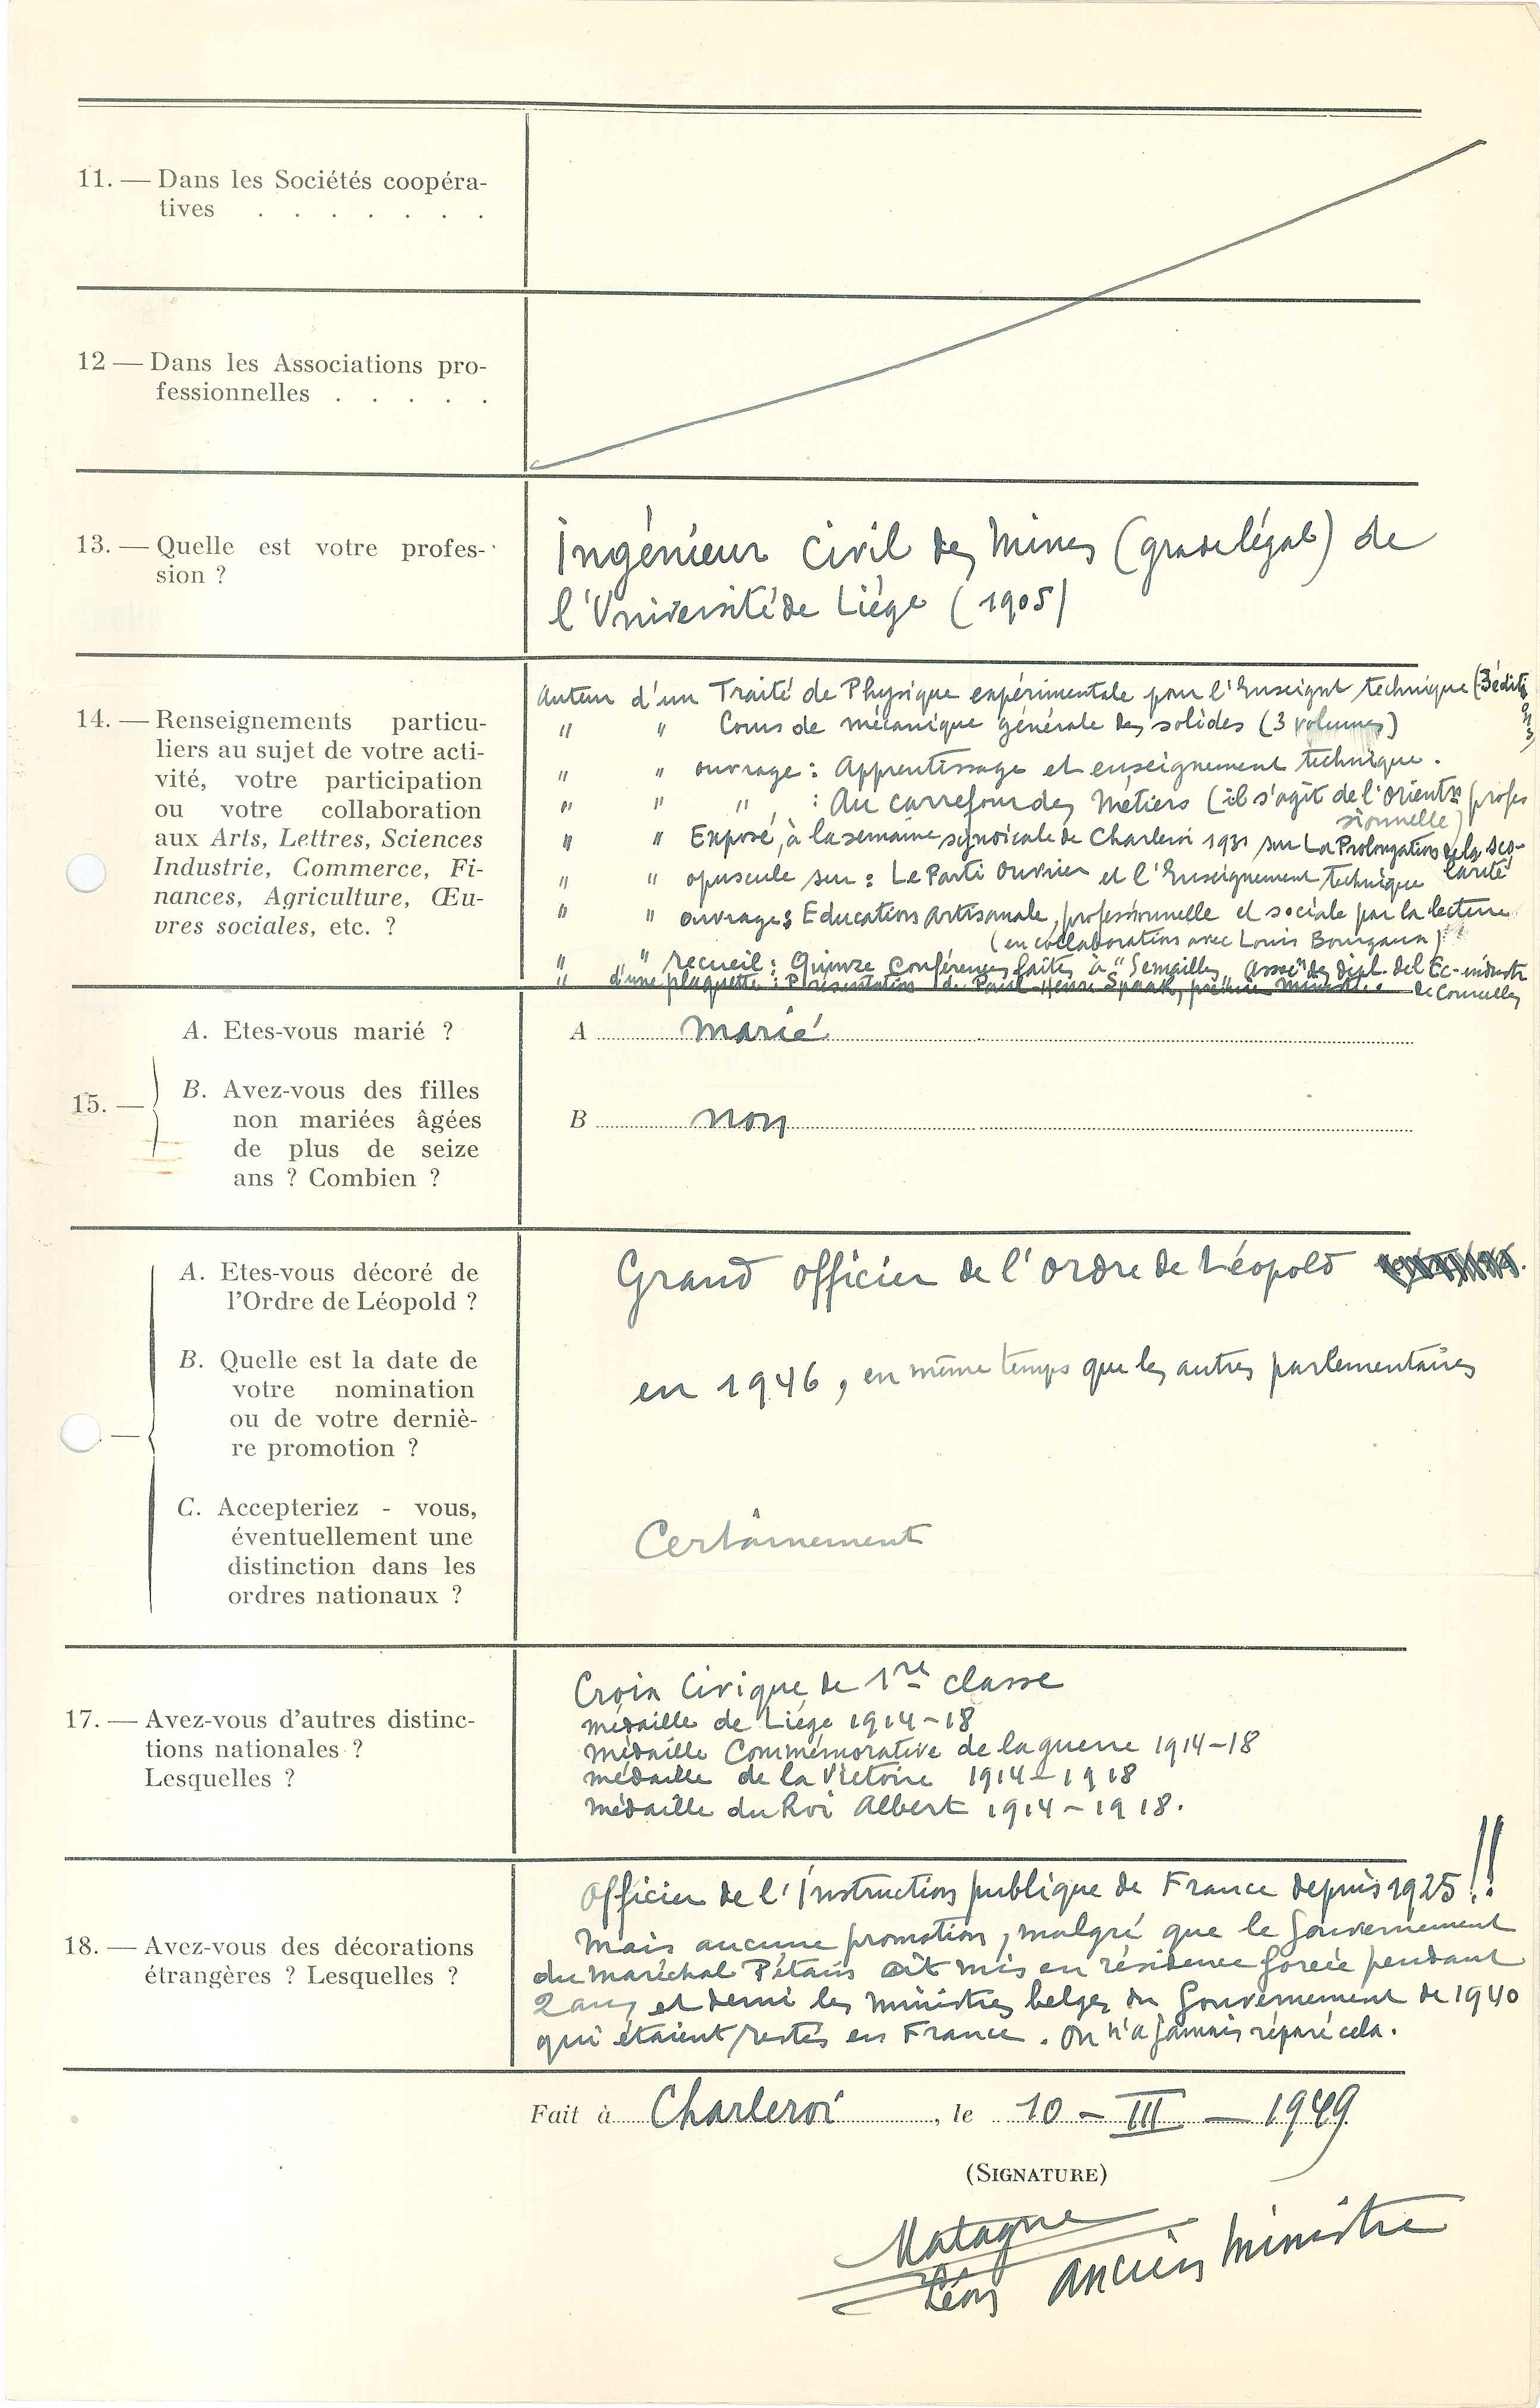 11. — Dans les Sociétés coopéra-
tives . . . . . . .
12 — Dans les Associations pro-
fessionnelles . . . . .
13. — Quelle est votre profes-
sion ?
Ingénieur civil des Mines (grade légal) de
l'Université de Liége (1905)
14. — Renseignements particu-
liers au sujet de votre acti-
vité, votre participation
ou votre collaboration
aux Arts, Lettres, Sciences
Industrie, Commerce, Fi-
nances, Agriculture, Œu-
vres sociales, etc. ?
Auteur d'un Traité de Physique expérimentale pour l'Enseignt technique (3 éditions)
" " Cours de mécanique générale des solides (3 volumes)
" " ouvrage : Apprentissage et enseignement technique.
" " " : Au carrefour des Métiers (il s'agit de l'orientn profes
sionnelle)
" " Exposé, à la semaine syndicale de Charleroi 1931 sur La Prolongation de la sco-
larité
" " opuscule sur : Le Parti Ouvrier et l'Enseignement technique
" " ouvrage : Education artisanale, professionnelle et sociale par la lecture
(en collaboration avec Louis Bourgaux)
" " recueil : Quinze Conférences faites à "Semailles" Assocn des dipl. de l'Ec. industr
de Courcelles
" d'une plaquette : Présentation de Paul-Henri Spaak, premier ministre.
15. —
A. Etes-vous marié ?
A marié
B. Avez-vous des filles
non mariées âgées
de plus de seize
ans ? Combien ?
B non
—
A. Etes-vous décoré de
l'Ordre de Léopold ?
Grand officier de l'ordre de Léopold
B. Quelle est la date de
votre nomination
ou de votre derniè-
re promotion ?
en 1946, en même temps que les autres parlementaires
C. Accepteriez - vous,
éventuellement une
distinction dans les
ordres nationaux ?
Certainement
17. — Avez-vous d'autres distinc-
tions nationales ?
Lesquelles ?
Croix Civique de 1re classe
médaille de Liége 1914-18
médaille Commémorative de la guerre 1914-18
médaille de la Victoire 1914-1918
médaille du Roi Albert 1914-1918.
18. — Avez-vous des décorations
étrangères ? Lesquelles ?
Officier de l'Instruction publique de France depuis 1925!!
Mais aucune promotion, malgré que le Gouvernement
du maréchal Pétain ait mis en résidence forcée pendant
2 ans et demi les ministres belges du Gouvernement de 1940
qui étaient restés en France. On n'a jamais réparé cela.
Fait à Charleroi, le 10 - III - 1949
(SIGNATURE)
Matagne
Léon ancien ministre